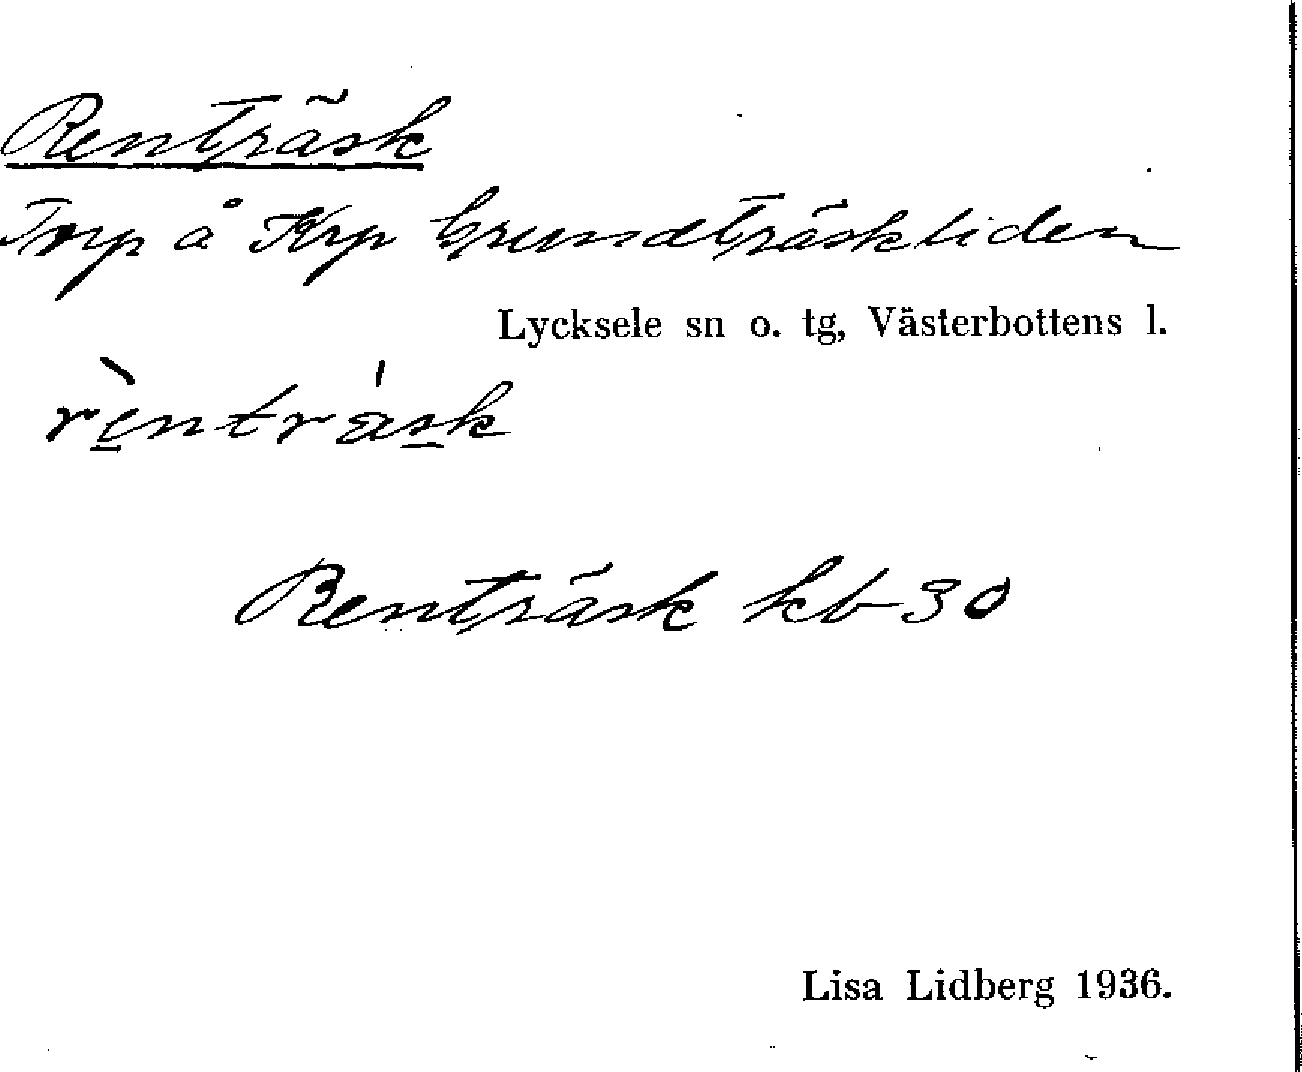 Renträsk
Trp å Krp Grundträskliden
Lycksele sn o. tg, Västerbottens l.
rènträsk
Renträsk kb 30
Lisa Lidberg 1936.